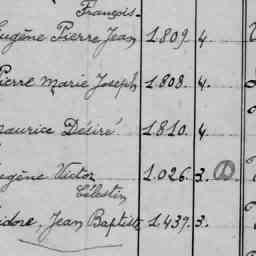 François-
Eugène Pierre Jean 1.809. 4.
Pierre Marie Joseph 1.808. 4.
Maurice Désiré 1.810. 4
Eugène Victor 1.026. 3. 1
Célestin
Isidore, Jean Baptiste 1.439. 3.